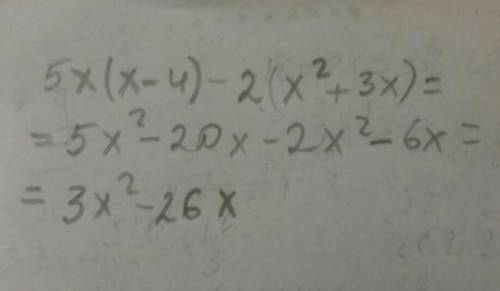 5x(x-4)-2(x²+3x)=
=5x²-20x-2x²-6x=
=3x²-26x